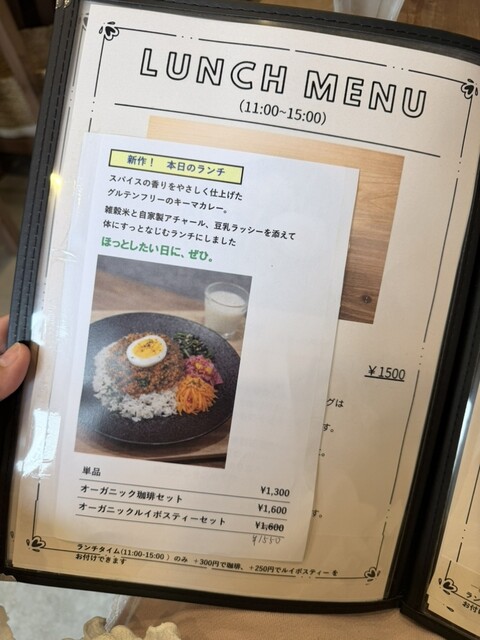 LUNCH MENU
(11:00~15:00)
新作！ 本日のランチ
スパイスの香りをやさしく仕上げた
グルテンフリーのキーマカレー。
雑穀米と自家製アチャール、豆乳ラッシーを添えて
体にすっとなじむランチにしました
ほっとしたい日に、ぜひ。
￥1500
グは
す。
す。
単品 ¥1,300
オーガニック珈琲セット ¥1,600
オーガニックルイボスティーセット ¥1,600
¥1550
ランチタイム(11:00-15:00 ) のみ ＋300円で珈琲、＋250円でルイボスティー を
お付けできます
ラン
お付け